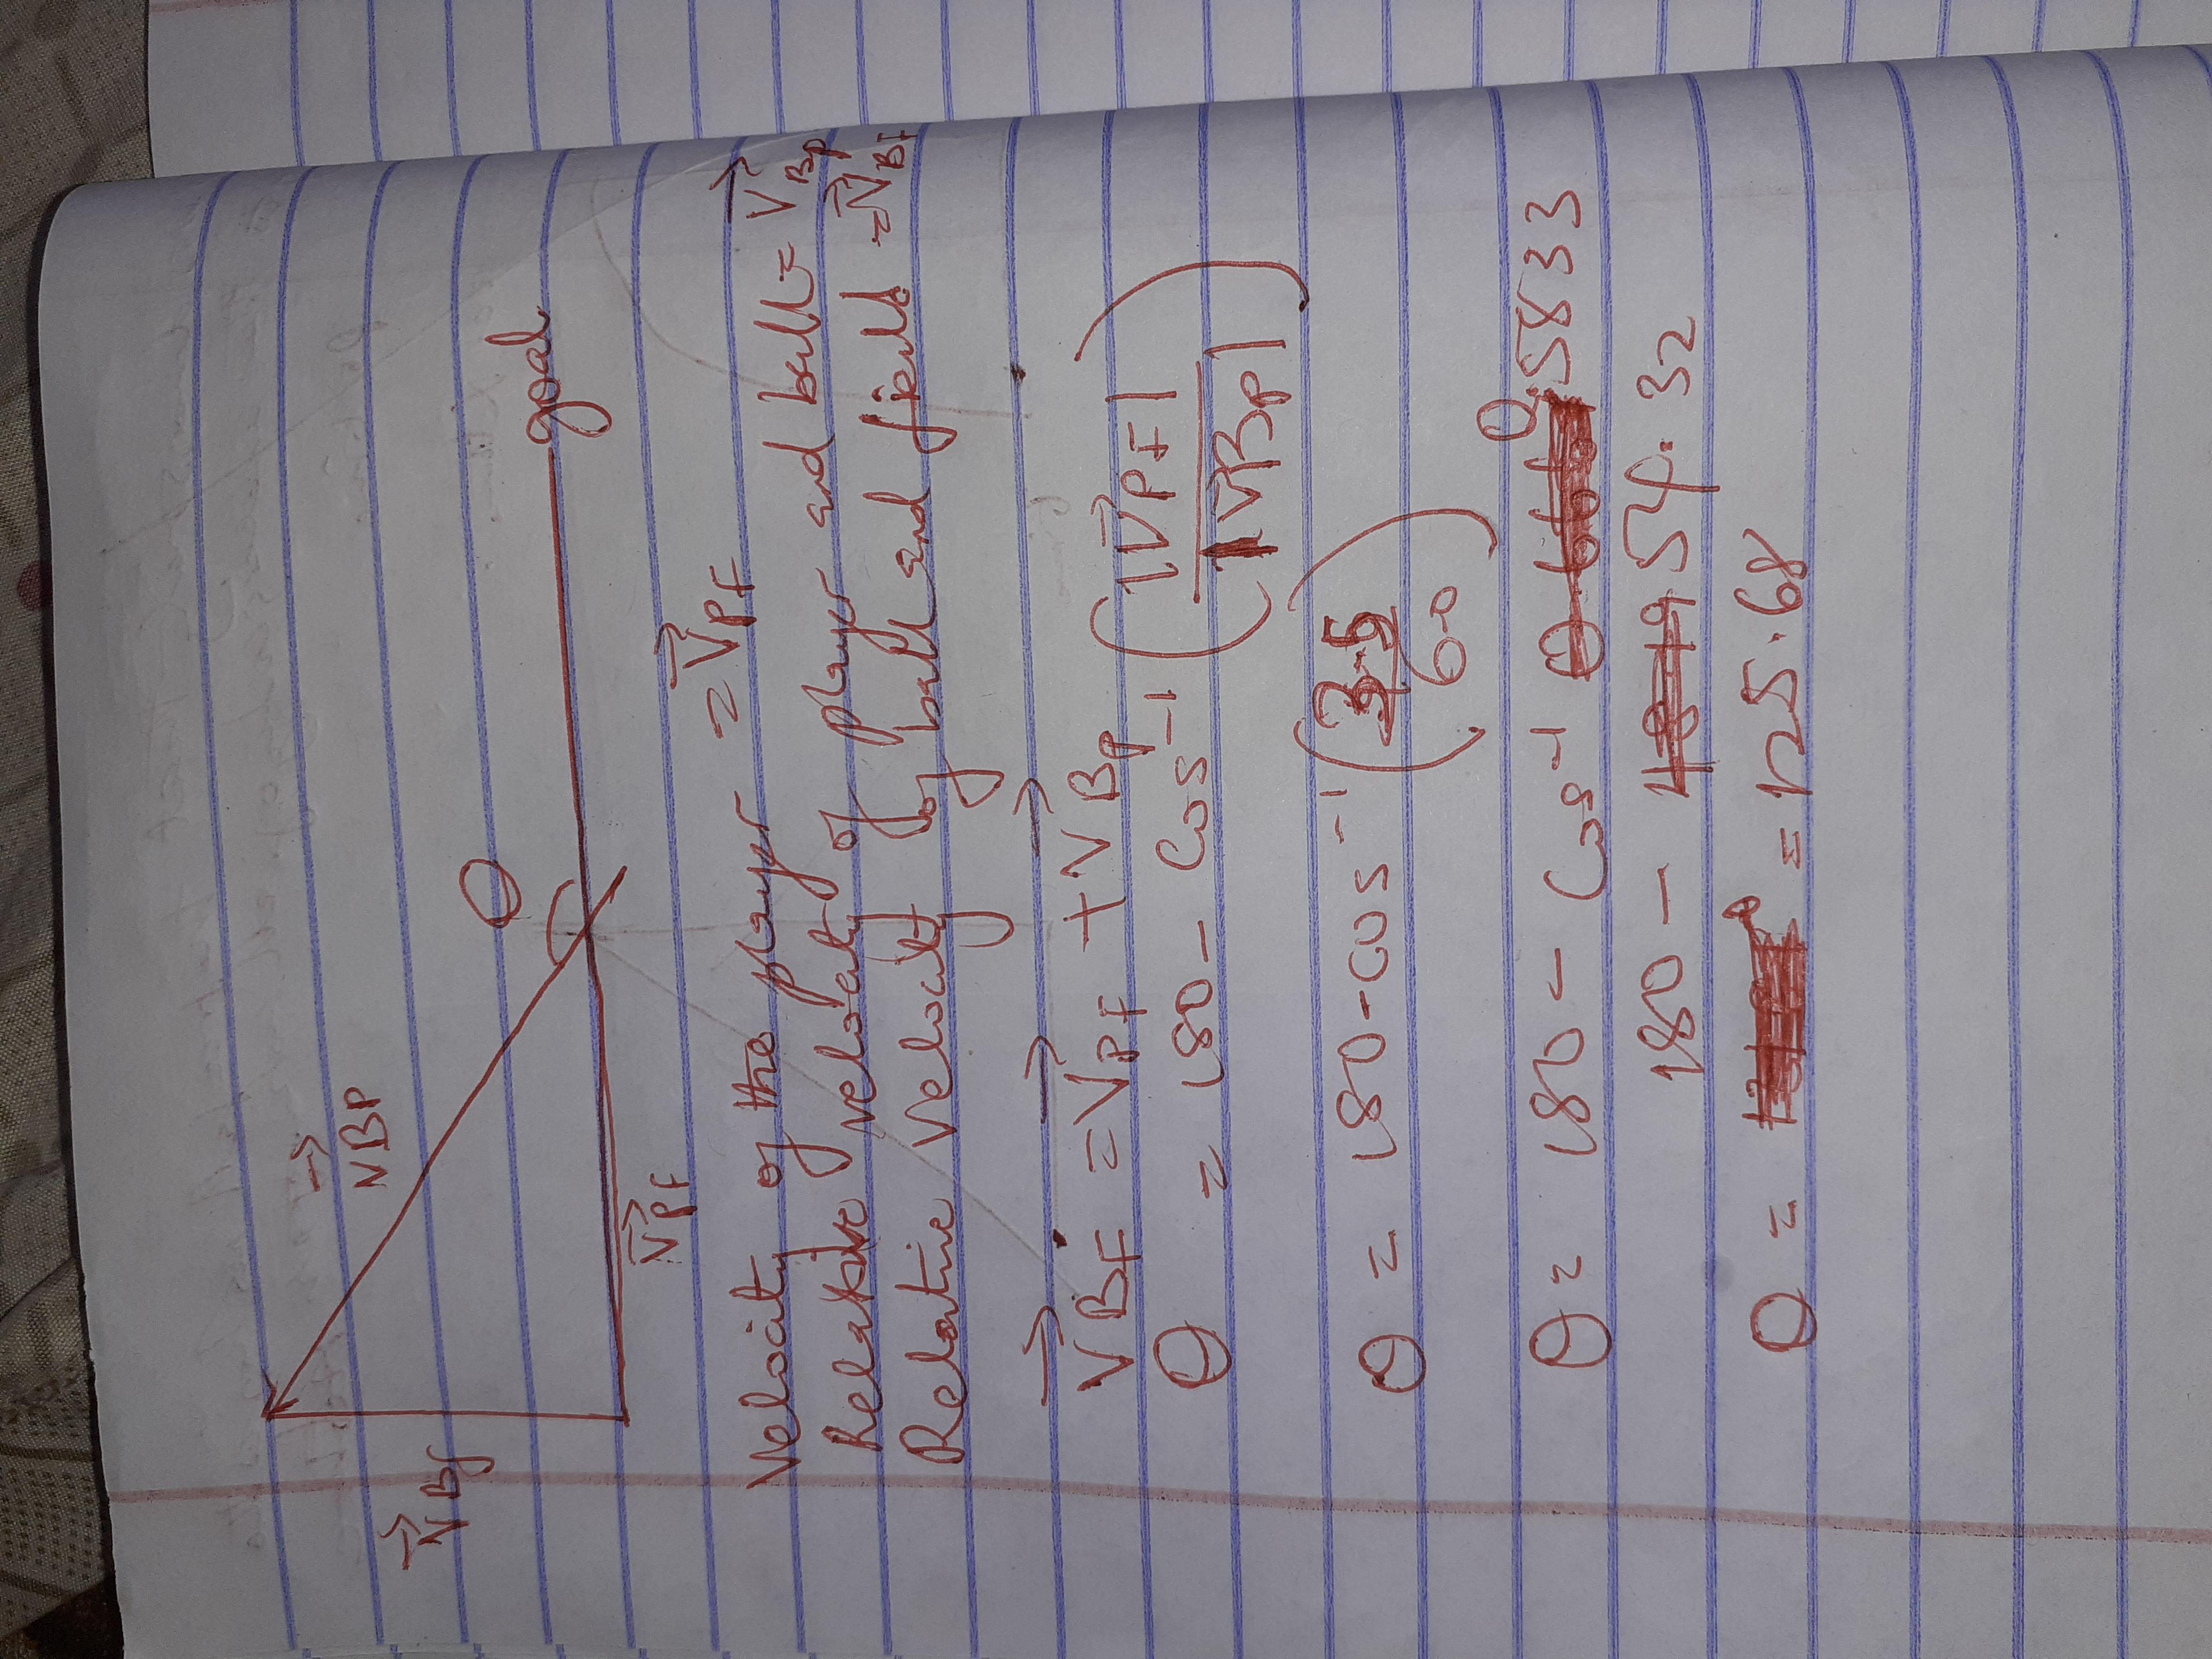 θ
goal
V⃗BP
V⃗Bf
V⃗Pf
Velocity of the player = V⃗PF
Relative velocity of player and ball = V⃗BP
Relative velocity of ball and field = V⃗BF
V⃗BF = V⃗PF + V⃗BP
θ = 180 - Cos⁻¹ (|V⃗PF| / |V⃗BP|)
θ = 180 - cos⁻¹ (3.5 / 6.0)
θ = 180 - Cos⁻¹ 0.5833
180 - 54.32
θ = = 125.68